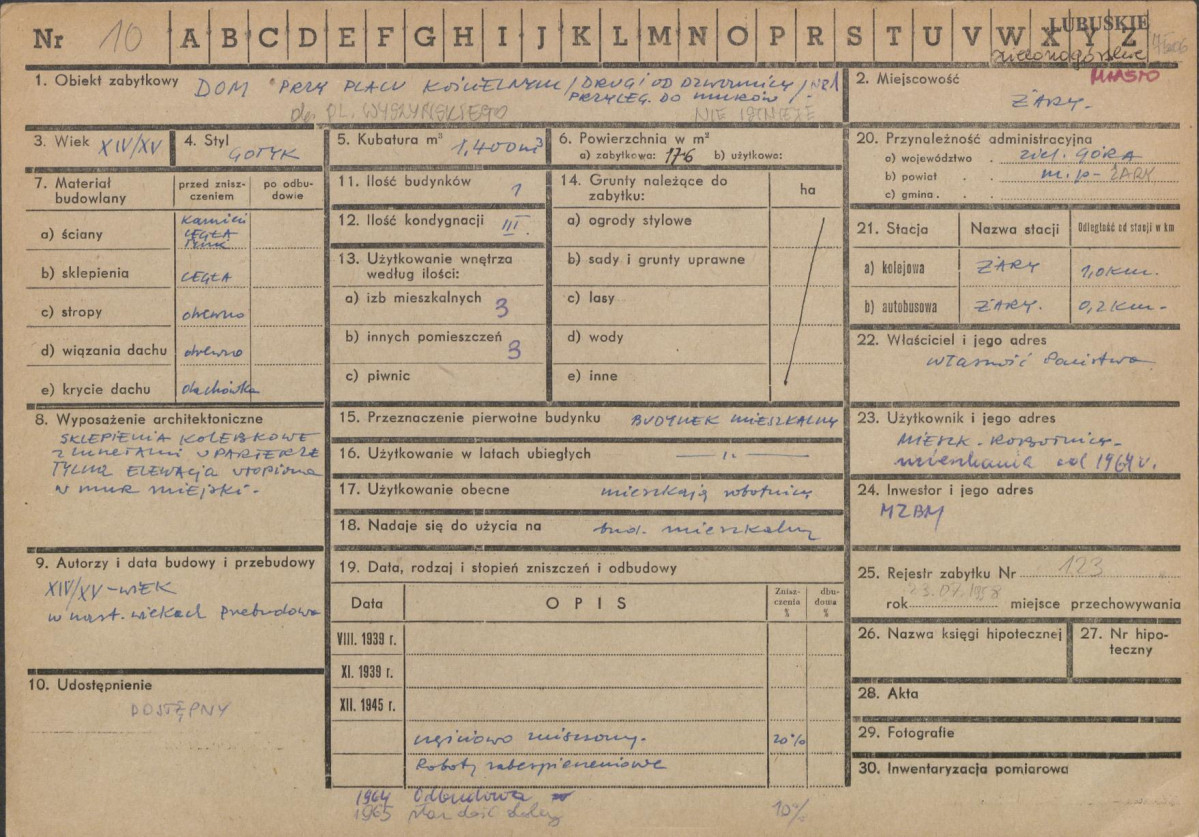 Nr 10 A B C D E F G H I J K L M N O P R S T U V W X Y Z
LUBUSKIE
zielonogórskie
1. Obiekt zabytkowy DOM PRZY PLACU KOŚCIELNYM / DRUGI OD DZWONNICY / NR 1
PRZYLEG. DO MURÓW
PL. WYSZYŃSKIEGO NIE ISTNIEJE
2. Miejscowość MIASTO
ŻARY.
3. Wiek XIV/XV
4. Styl GOTYK
5. Kubatura m³ 1,400 m³
6. Powierzchnia w m²
a) zabytkowa: 176 b) użytkowa:
20. Przynależność administracyjna
a) województwo . ziel. GÓRA
b) powiat . . m. p- ŻARY
c) gmina . .
7. Materiał budowlany
przed znisz-
czeniem
po odbu-
dowie
a) ściany kamień
CEGŁA
TYNK
b) sklepienia CEGŁA
c) stropy drewno
d) wiązania dachu drewno
e) krycie dachu dachówka
11. Ilość budynków 1
12. Ilość kondygnacji III
13. Użytkowanie wnętrza
według ilości:
a) izb mieszkalnych 3
b) innych pomieszczeń 3
c) piwnic
14. Grunty należące do
zabytku:
ha
a) ogrody stylowe
b) sady i grunty uprawne
c) lasy
d) wody
e) inne
21. Stacja Nazwa stacji Odległość od stacji w km
a) kolejowa ŻARY 1,0 km.
b) autobusowa ŻARY. 0,2 km-
22. Właściciel i jego adres
własność Państwa
8. Wyposażenie architektoniczne
SKLEPIENIA KOLEBKOWE
Z LUNETAMI W PARTERZE
TYLNA ELEWACJA UTOPIONA
W MUR MIEJSKI.
15. Przeznaczenie pierwotne budynku BUDYNEK MIESZKALNY
16. Użytkowanie w latach ubiegłych — „ —
17. Użytkowanie obecne mieszkają robotnicy
18. Nadaje się do użycia na bud. mieszkalny
23. Użytkownik i jego adres
MIESZK. ROBOTNICY-
mieszkania od 1964 r.
24. Inwestor i jego adres
MZBM
9. Autorzy i data budowy i przebudowy
XIV/XV - WIEK
w nast. wiekach przebudowa
19. Data, rodzaj i stopień zniszczeń i odbudowy
Data OPIS
Znisz-
czenia
%
dbu-
dowa
%
VIII. 1939 r.
XI. 1939 r.
XII. 1945 r.
częściowo zniszczony. 20%
Roboty zabezpieczeniowe
1964 Odbudowa
1965 stan dość dobry 10%
25. Rejestr zabytku Nr 123
rok 23.07.1958 miejsce przechowywania
26. Nazwa księgi hipotecznej
27. Nr hipo-
teczny
10. Udostępnienie
DOSTĘPNY
28. Akta
29. Fotografie
30. Inwentaryzacja pomiarowa